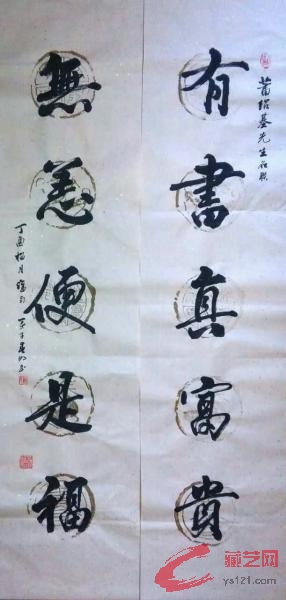 蕭紹基先生
有書真富貴
無恙便是福
丁酉
藏艺网
ys121.com